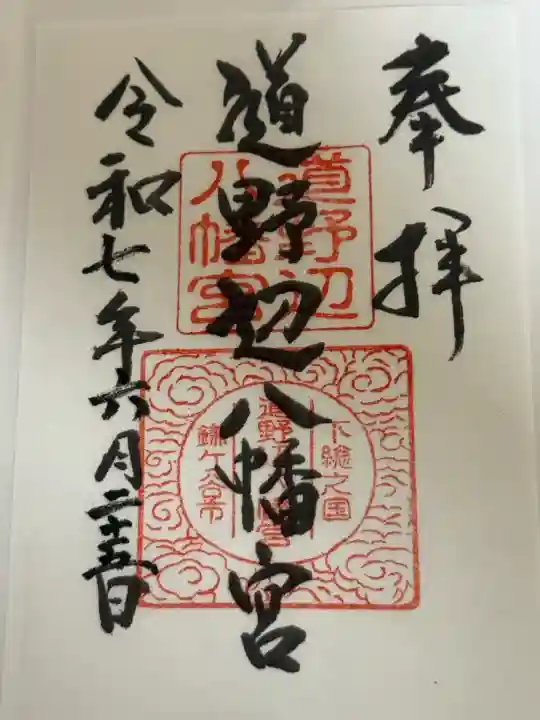 奉拝
道野辺八幡宮
令和七年六月二十五日
道野辺
八幡宮
下總之国
道野辺八幡宮
鎌ケ谷市